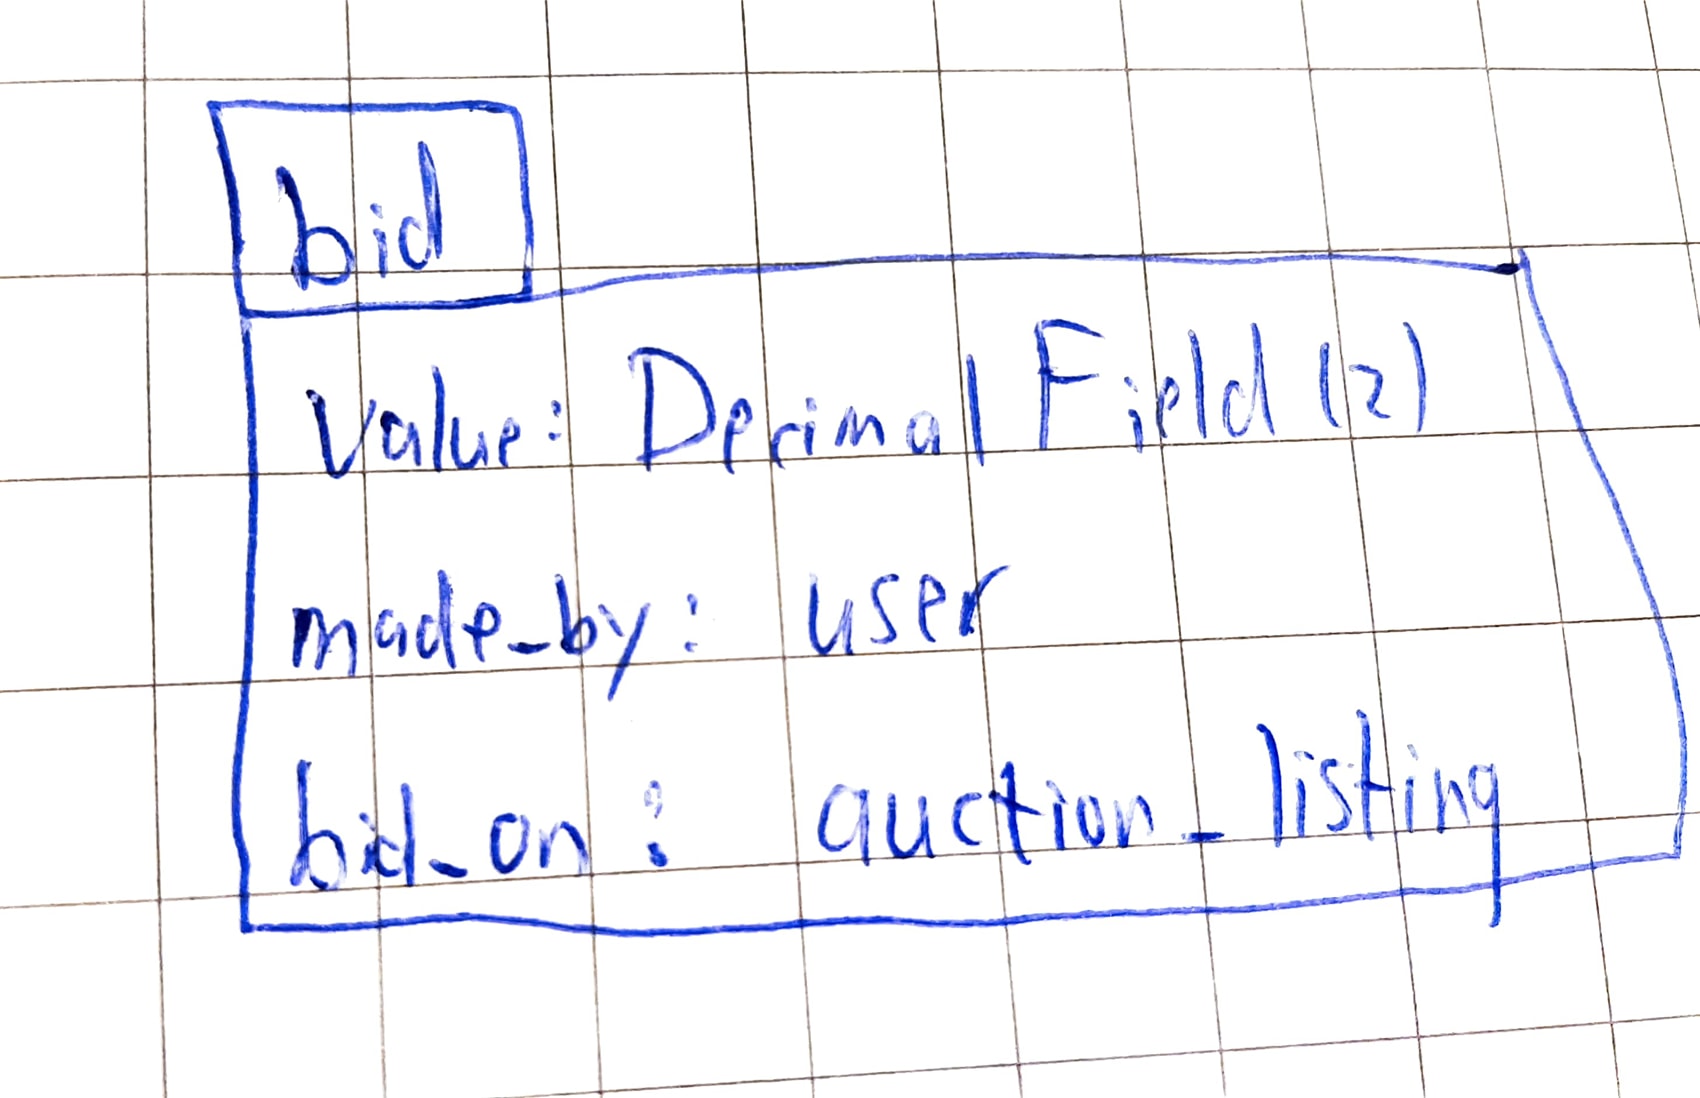 bid
Value: Decimal Field (2)
made_by: user
bid_on: auction_listing